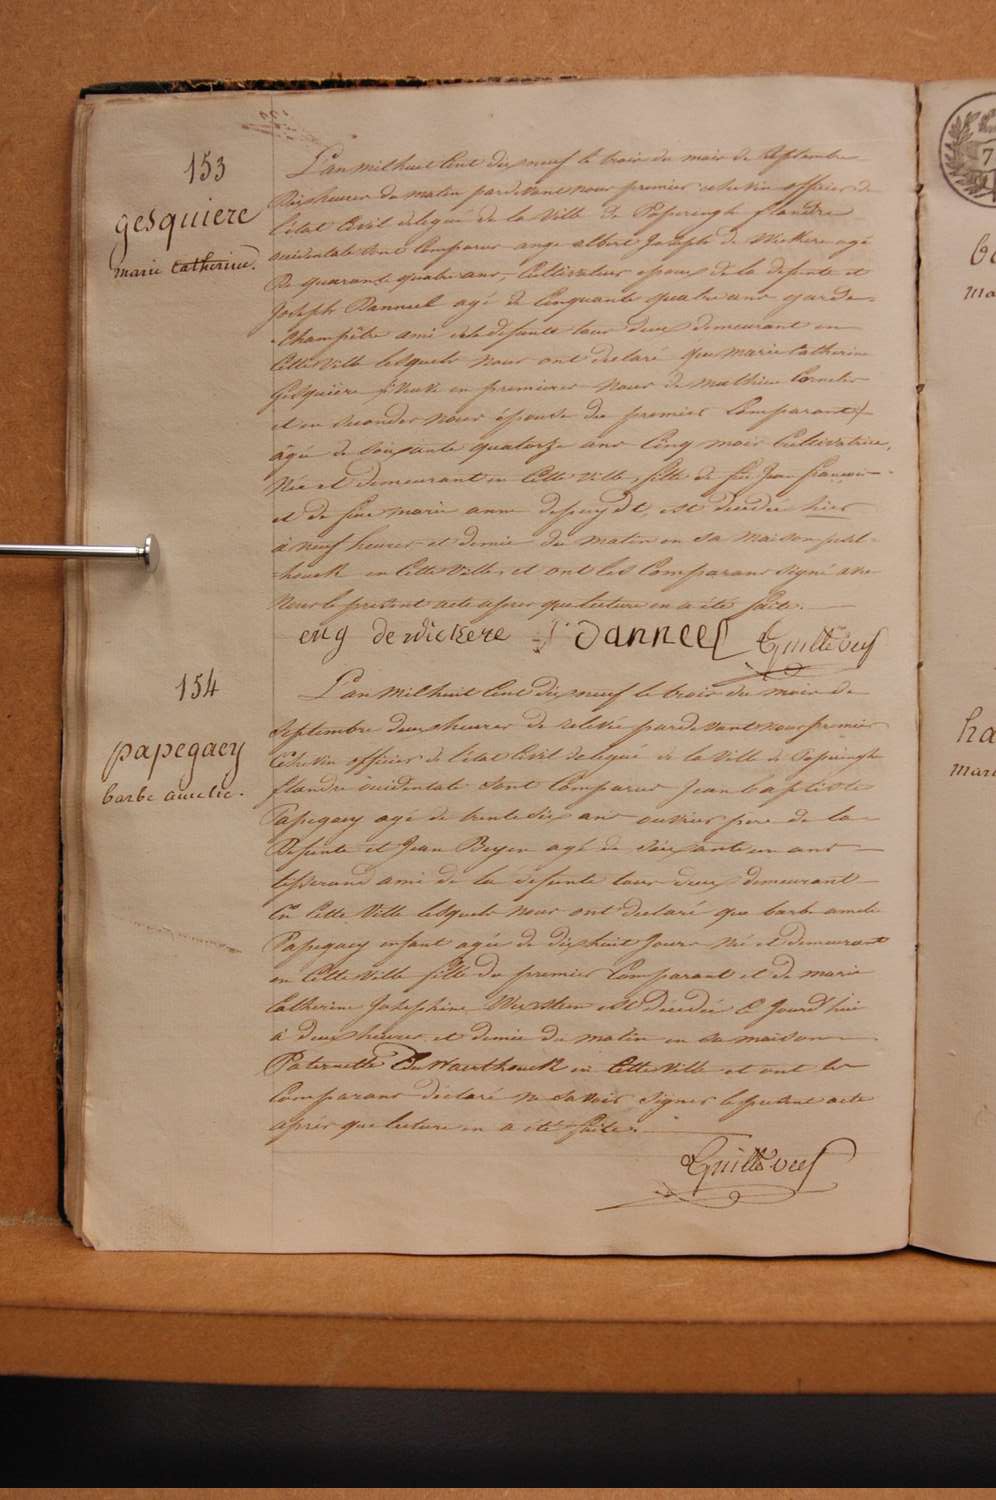 153
gesquiere
marie catherine.
L'an mil huit Cent dix neuf le trois du mois de Septembre
Dix heures du matin pardevant nous premier echevin officier de
l'etat Civil delegué de la Ville de Poperinghe flandre
occidentale sont Comparus ange albert Joseph de Wickere agé
De quarante quatre ans, Cultivateur epoux de la defunte et
Joseph Danneel agé de Cinquante quatre ans garde-
-Champêtre ami de la defunte tous deux demeurant en
Cette Ville lesquels nous ont declaré que marie Catherine
Gesquiere Veuve en premieres noces de mathieu
et en secondes noces épouse du premier Comparant
âgée de soixante quatorze ans Cinq mois Cultivatrice,
Née et demeurant en Cette Ville, fille de feu Jean françois
et de feue marie anne est decedée hier
à neuf heures et demie du matin en sa maison
-houck en Cette Ville, et ont les Comparans signé avec
Nous le present acte apres que lecture en a été faite.
eng dewickere J. Danneel
154
papegaey
barbe amelie.
L'an mil huit Cent dix neuf le trois du mois de
Septembre deux heures de relevée pardevant nous premier
Echevin officier de l'état Civil delegué de la Ville de Poperinghe
flandre occidentale sont Comparus Jean baptiste
Papegaey agé de trente six ans ouvrier pere de la
Defunte et Jean Beyen agé de soixante un ans
tisserand ami de la defunte tous deux demeurant
En Cette Ville lesquels nous ont declaré que barbe amelie
Papegaey enfant agée de dix huit Jours né et demeurant
en Cette Ville fille du premier Comparant et de marie
Catherine Josephine est Décedée Ce Jourd'hui
à deux heures et demie du matin en sa maison
Paternelle en Cette Ville et ont les
Comparans déclaré ne savoir signer le present acte
après que lecture en a été faite.
7